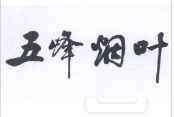 五峰烟叶